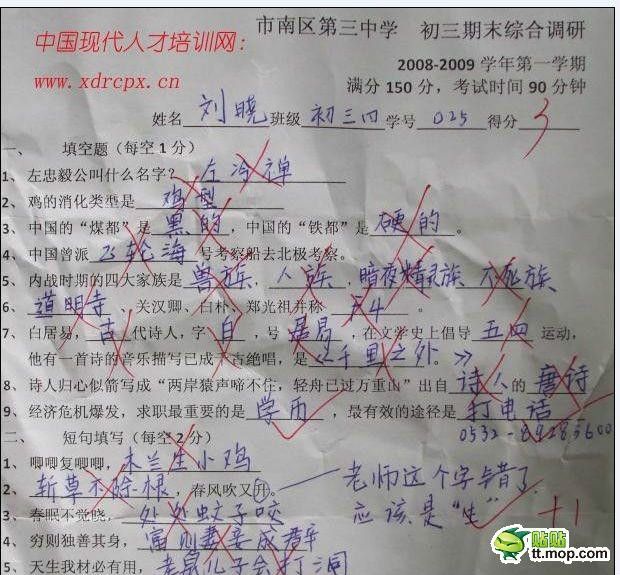 市南区第三中学 初三期末综合调研
中国现代人才培训网：
2008-2009 学年第一学期
www.xdrcpx.cn
满分 150 分，考试时间 90 分钟
姓名 刘晓 班级 初三四 学号 025 得分 3
一、 填空题（每空 1 分）
1、左忠毅公叫什么名字？ 左冷禅
2、鸡的消化类型是 鸡型
3、中国的“煤都”是 黑的 ，中国的“铁都”是 硬的 。
4、中国曾派 飞轮海 号考察船去北极考察。
5、内战时期的四大家族是 兽族 ， 人族 ， 暗夜精灵族 不死族
6、 道明寺 、关汉卿、白朴、郑光祖并称 F4 。
7、白居易， 古 代诗人，字 白 ，号 居易 ，在文学史上倡导 五四 运动，
他有一首诗的音乐描写已成千古绝唱，是 《千里之外。》
8、诗人归心似箭写成“两岸猿声啼不住，轻舟已过万重山”出自 诗人 的 唐诗
9、经济危机爆发，求职最重要的是 学历 ，最有效的途径是 打电话
0532-89283600
二、 短句填写（每空 2 分）
1、唧唧复唧唧， 木兰生小鸡
2、 斩草不除根 ，春风吹又升。 老师这个字错了，
应该是“生” +1
3、春眠不觉晓， 处处蚊子咬
4、穷则独善其身， 富则妻妾成群
5、天生我材必有用， 老鼠儿子会打洞
贴贴
tt.mop.com